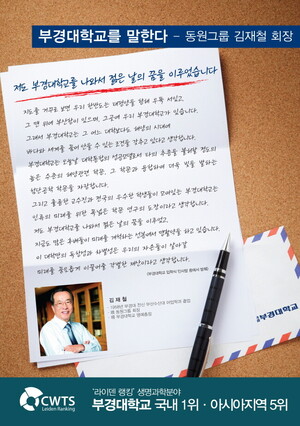 부경대학교를 말한다 - 동원그룹 김재철 회장
저도 부경대학교를 나와서 젊은 날의 꿈을 이루었습니다
지도를 거꾸로 보면 우리 한반도는 태평양을 향해 우뚝 서있고,
그 맨 위에 부산항이 있으며, 그곳에 우리 부경대학교가 있습니다.
그래서 부경대학교는 그 어느 대학보다도 해양의 시대에
바다와 세계를 품에 안을 수 있는 조건을 갖추고 있다고 생각합니다.
부경대학교는 오늘날 대학통합의 성공모델로서 타의 추종을 불허할 정도의
높은 수준의 해양관련 학문, 그 학문과 융합하여 더욱 빛을 발하는
첨단공학 학문을 자랑합니다.
그리고 훌륭한 교수진과 전국의 우수한 학생들이 모여있는 부경대학교는
인류의 미래를 위한 폭넓은 학문 연구의 도장이라고 생각합니다.
저도 부경대학교를 나와서 젊은 날의 꿈을 이루었고,
지금도 많은 후배들이 미래를 개척하는 선봉에서 맹활약을 하고 있습니다.
이 대학만의 독창성과 차별성은 우리의 자손들이 살아갈
미래를 풍요롭게 이끌어줄 각별한 재산이라고 생각합니다.
김 재 철
부경대학교
CWTS
Leiden Ranking
'라이덴 랭킹' 생명과학분야
부경대학교 국내 1위 · 아시아지역 5위